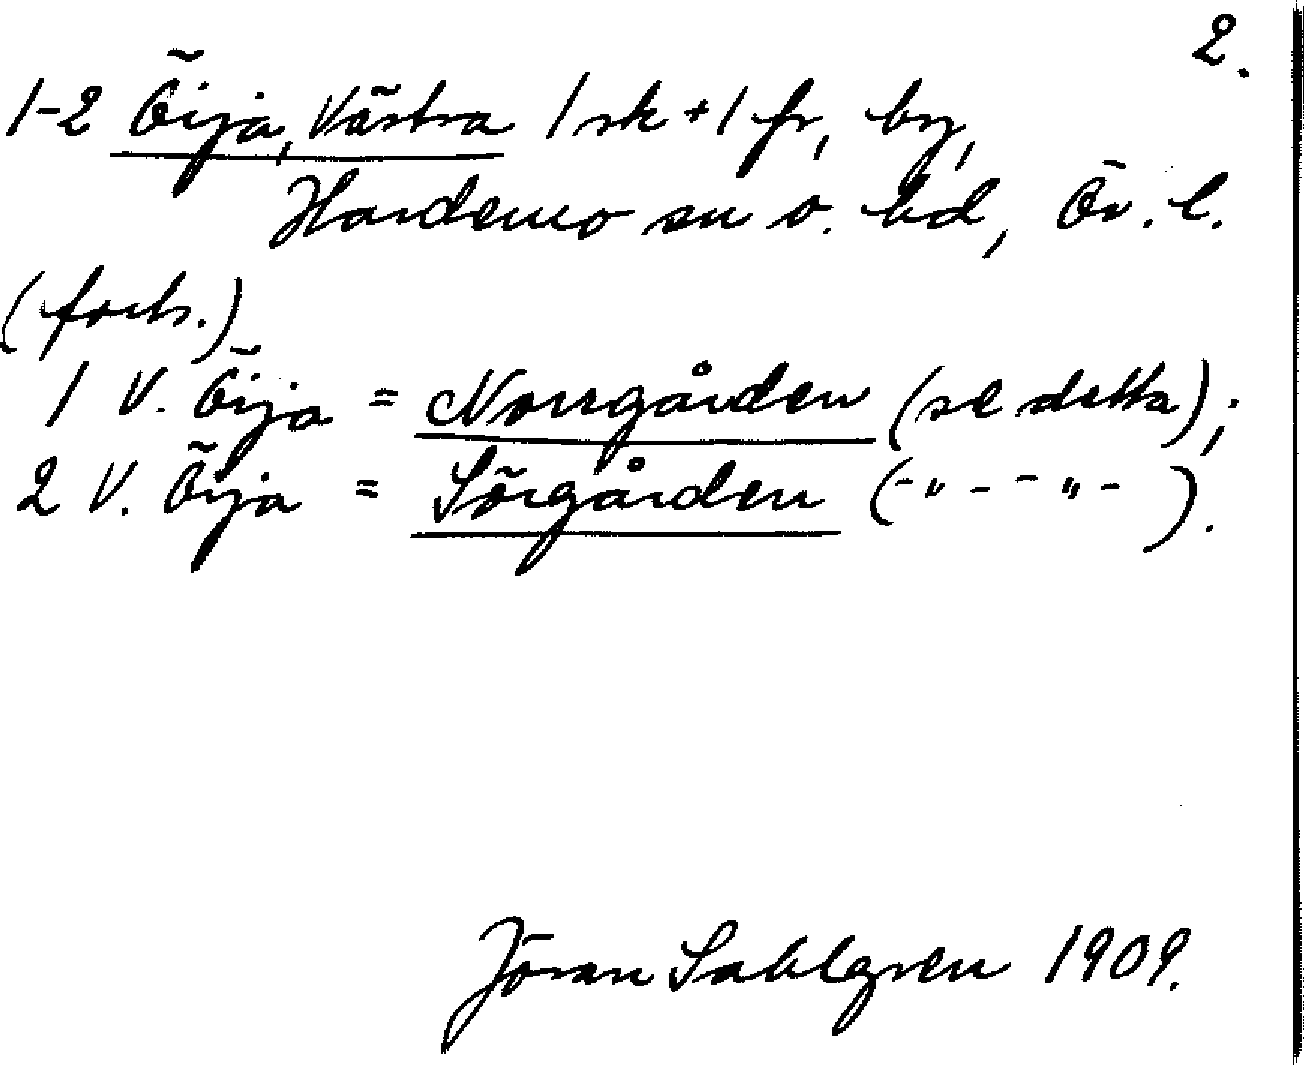 2.
1-2 Öija, Västra 1 sk + 1 fr, by,
Hardemo sn o. hd, Ör. l.
(forts.)
1 V. Öija = Norrgården (se detta);
2 V. Öija = Sörgården (-"- -"-).
Jöran Sahlgren 1909.